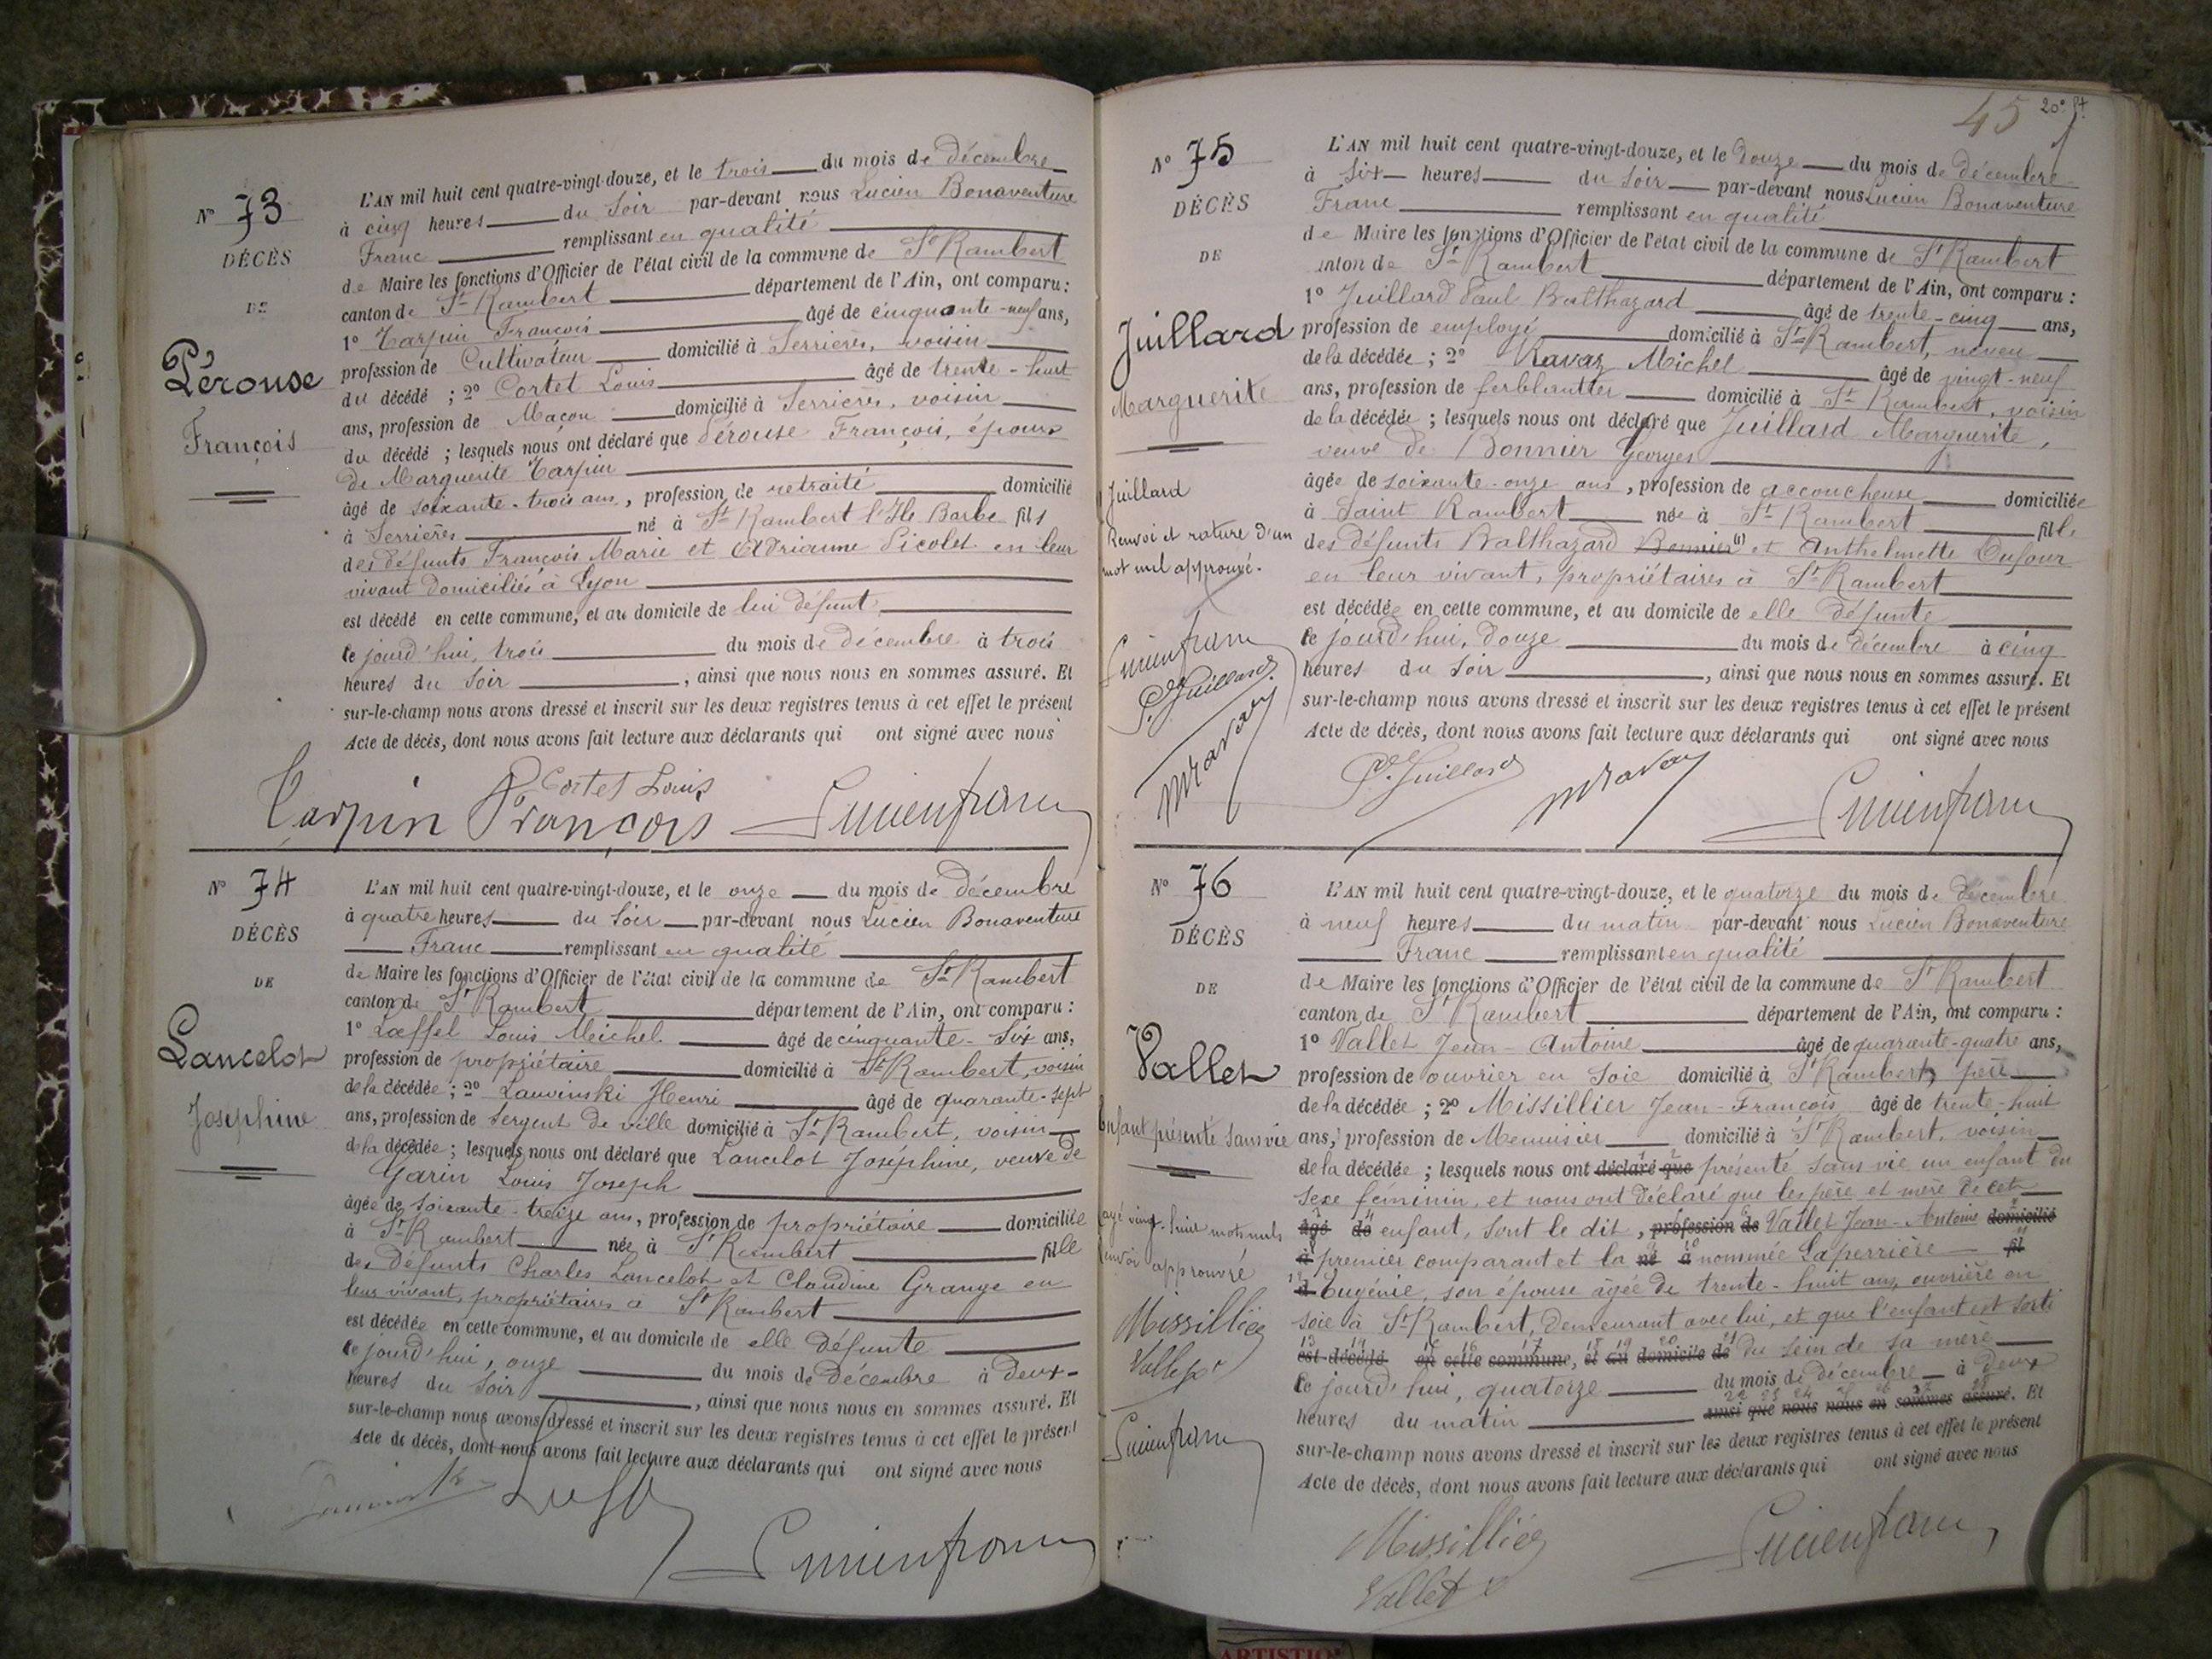 N° 73
DÉCÈS
DE
Pérouse
François
L'AN mil huit cent quatre-vingt-douze, et le trois du mois de décembre
à cinq heures du soir par-devant nous Lucien Bonaventure
Franc remplissant en qualité
de Maire les fonctions d'Officier de l'état civil de la commune de St Rambert
canton de St Rambert département de l'Ain, ont comparu :
1° Tarpin François âgé de cinquante-neuf ans,
profession de Cultivateur domicilié à Serrières, voisin
du décédé ; 2° Cortet Louis âgé de trente-huit
ans, profession de Maçon domicilié à Serrières, voisin
du décédé ; lesquels nous ont déclaré que Pérouse François, époux
de Marguerite Tarpin
âgé de soixante-trois ans, profession de retraité domicilié
à Serrières né à St Rambert l'Ile Barbe fils
des défunts François Marie et Adrianne Picolet en leur
vivant domiciliés à Lyon
est décédé en cette commune, et au domicile de lui défunt
ce jourd'hui, trois du mois de décembre à trois
heures du soir, ainsi que nous nous en sommes assuré. Et
sur-le-champ nous avons dressé et inscrit sur les deux registres tenus à cet effet le présent
Acte de décès, dont nous avons fait lecture aux déclarants qui ont signé avec nous
Cortet Louis
Tarpin François Lucien franc
N° 74
DÉCÈS
DE
Lancelot
Joséphine
L'AN mil huit cent quatre-vingt-douze, et le onze du mois de décembre
à quatre heures du soir par-devant nous Lucien Bonaventure
Franc remplissant en qualité
de Maire les fonctions d'Officier de l'état civil de la commune de St Rambert
canton de St Rambert département de l'Ain, ont comparu :
1° Lœffel Louis Meichel âgé de cinquante-six ans,
profession de propriétaire domicilié à St Rambert, voisin
de la décédée ; 2° Lauvinski Henri âgé de quarante-sept
ans, profession de Sergent de ville domicilié à St Rambert, voisin
de la décédée ; lesquels nous ont déclaré que Lancelot Joséphine, veuve de
Garin Louis Joseph
âgée de soixante-treize ans, profession de propriétaire domiciliée
à St Rambert née à St Rambert fille
des défunts Charles Lancelot et Claudine Grange en
leur vivant, propriétaires à St Rambert
est décédée en cette commune, et au domicile de elle défunte
ce jourd'hui, onze du mois de décembre à deux
heures du soir, ainsi que nous nous en sommes assuré. Et
sur-le-champ nous avons dressé et inscrit sur les deux registres tenus à cet effet le présent
Acte de décès, dont nous avons fait lecture aux déclarants qui ont signé avec nous
Lucien franc
45
N° 75
DÉCÈS
DE
Juillard
Marguerite
Juillard
Renvoi et rature d'un
mot nul approuvé.
Lucien franc
P. Juillard
M Ravaz
L'AN mil huit cent quatre-vingt-douze, et le douze du mois de décembre
à six heures du soir par-devant nous Lucien Bonaventure
Franc remplissant en qualité
de Maire les fonctions d'Officier de l'état civil de la commune de St Rambert
anton de St Rambert département de l'Ain, ont comparu :
1° Juillard Paul Balthazard âgé de trente-cinq ans,
profession de employé domicilié à St Rambert, neveu
de la décédée ; 2° Ravaz Michel âgé de vingt-neuf
ans, profession de ferblantier domicilié à St Rambert, voisin
de la décédée ; lesquels nous ont déclaré que Juillard Marguerite,
veuve de Bonnier Georges
âgée de soixante-onze ans, profession de accoucheuse domiciliée
à Saint Rambert née à St Rambert fille
des défunts Balthazard Bonnier (1) et Anthelmette Dufour
en leur vivant, propriétaires à St Rambert
est décédée en cette commune, et au domicile de elle défunte
ce jourd'hui, douze du mois de décembre à cinq
heures du soir, ainsi que nous nous en sommes assuré. Et
sur-le-champ nous avons dressé et inscrit sur les deux registres tenus à cet effet le présent
Acte de décès, dont nous avons fait lecture aux déclarants qui ont signé avec nous
P. Juillard M Ravaz Lucien franc
N° 76
DÉCÈS
DE
Vallet
Enfant présenté sans vie
rayé vingt-huit mots nuls
renvoi approuvé
Missillier
Vallet
Lucien franc
L'AN mil huit cent quatre-vingt-douze, et le quatorze du mois de décembre
à neuf heures du matin par-devant nous Lucien Bonaventure
Franc remplissant en qualité
de Maire les fonctions d'Officier de l'état civil de la commune de St Rambert
canton de St Rambert département de l'Ain, ont comparu :
1° Vallet Jean-Antoine âgé de quarante-quatre ans,
profession de ouvrier en soie domicilié à St Rambert, père
de la décédée ; 2° Missillier Jean-François âgé de trente-huit
ans, profession de Menuisier domicilié à St Rambert, voisin
de la décédée ; lesquels nous ont déclaré que présenté sans vie un enfant du
sexe féminin, et nous ont déclaré que les père et mère de cet
âgé de enfant, sont le dit, profession de Vallet Jean-Antoine domicilié
à premier comparant et la né à nommée Laperrière fil
d Eugénie, son épouse âgée de trente-huit ans, ouvrière en
soie à St Rambert, demeurant avec lui, et que l'enfant est sorti
est décédé en cette commune, et au domicile de du sein de sa mère
ce jourd'hui, quatorze du mois de décembre à deux
heures du matin ainsi que nous nous en sommes assuré. Et
sur-le-champ nous avons dressé et inscrit sur les deux registres tenus à cet effet le présent
Acte de décès, dont nous avons fait lecture aux déclarants qui ont signé avec nous
Missillier Lucien franc
Vallet
ARTISTIQ